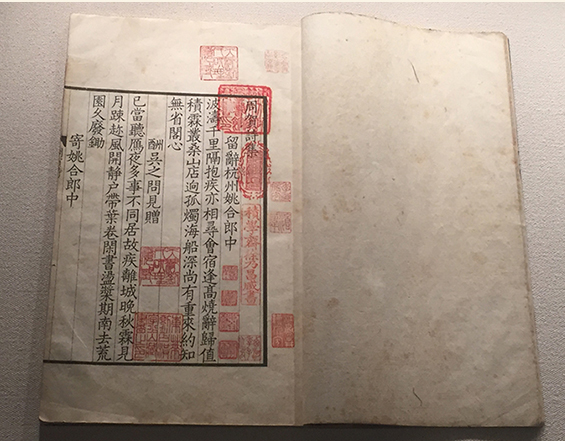 周賀詩集
留辭杭州姚合郎中
波濤千里隔抱疾亦相尋會宿逢高燒辭歸值
積霖叢桑山店逈孤燭海船深尚有重來約知
無省閣心
酬吳之問見贈
已當聽鴈夜多事不同居故疾離城晚秋霖見
月踈趂風開靜户帶葉卷閑書盪槳期南去荒
園久廢鋤
寄姚合郎中
積學齋徐乃昌藏書